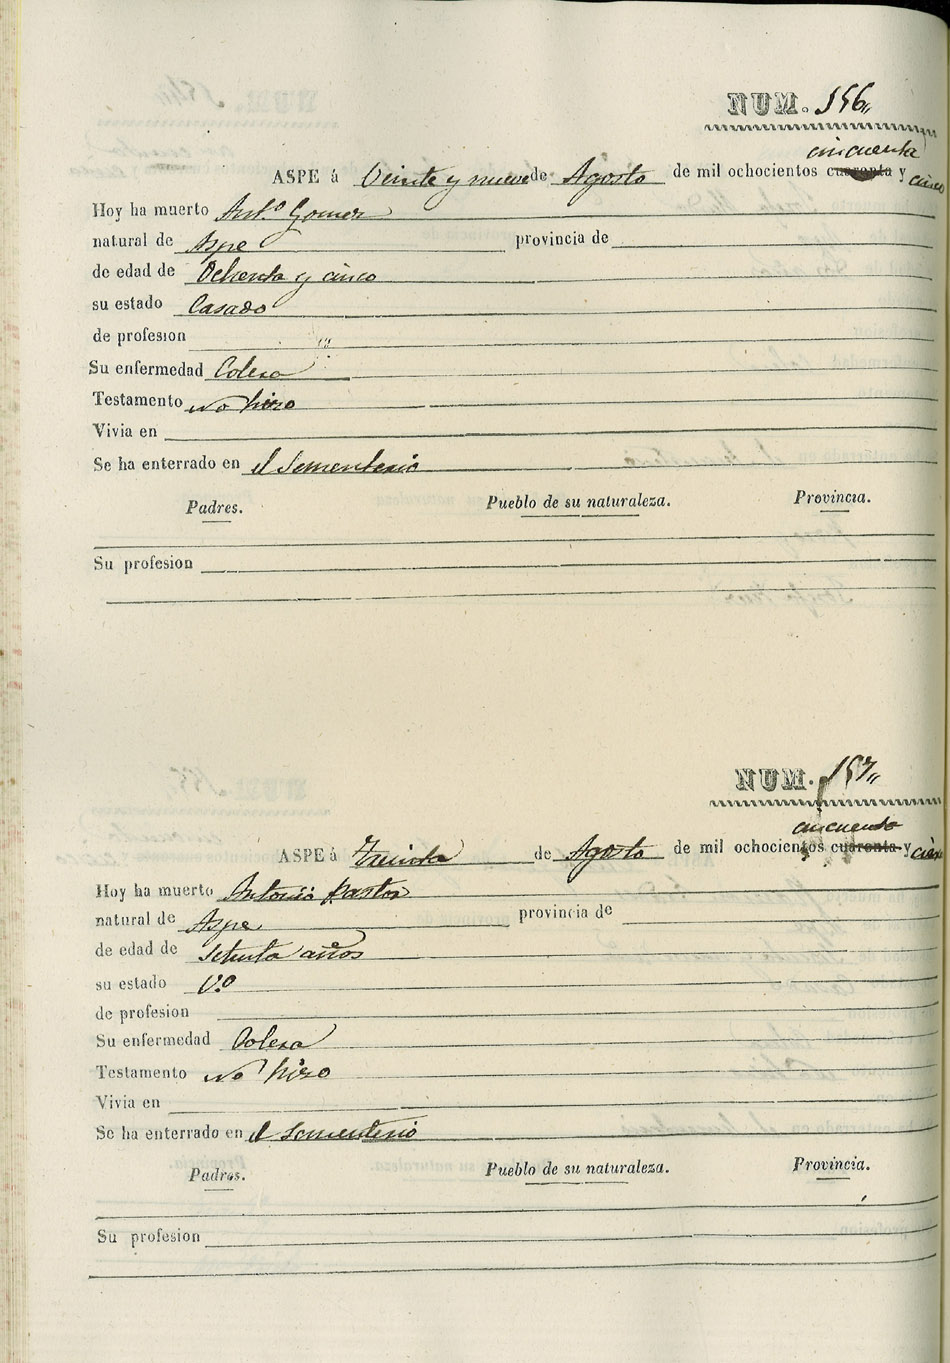 NUM. 156
cincuenta
ASPE á Veinte y nueve de Agosto de mil ochocientos cuarenta y cinco
Hoy ha muerto Ant.º Gomez
natural de Aspe provincia de
de edad de Ochenta y cinco
su estado Casado
de profesion "
Su enfermedad Colera
Testamento no hizo
Vivia en
Se ha enterrado en el Sementerio
Padres. Pueblo de su naturaleza. Provincia.
Su profesion
NUM. 157
cincuenta
ASPE á Treinta de Agosto de mil ochocientos cuarenta y cinco
Hoy ha muerto Antonio Pastor
natural de Aspe provincia de
de edad de setenta años
su estado V.º
de profesion
Su enfermedad Colera
Testamento no hizo
Vivia en
Se ha enterrado en el Sementerio
Padres. Pueblo de su naturaleza. Provincia.
Su profesion